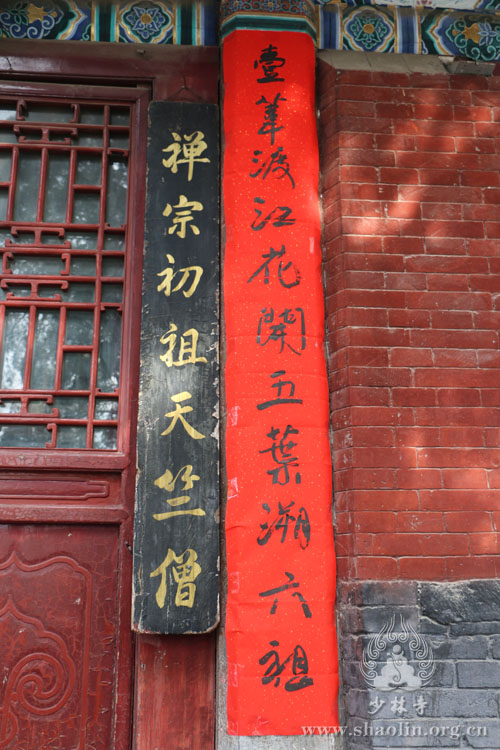 壹葦渡江花開五葉溯六祖
禅宗初祖天竺僧
少林寺
www.shaolin.org.cn